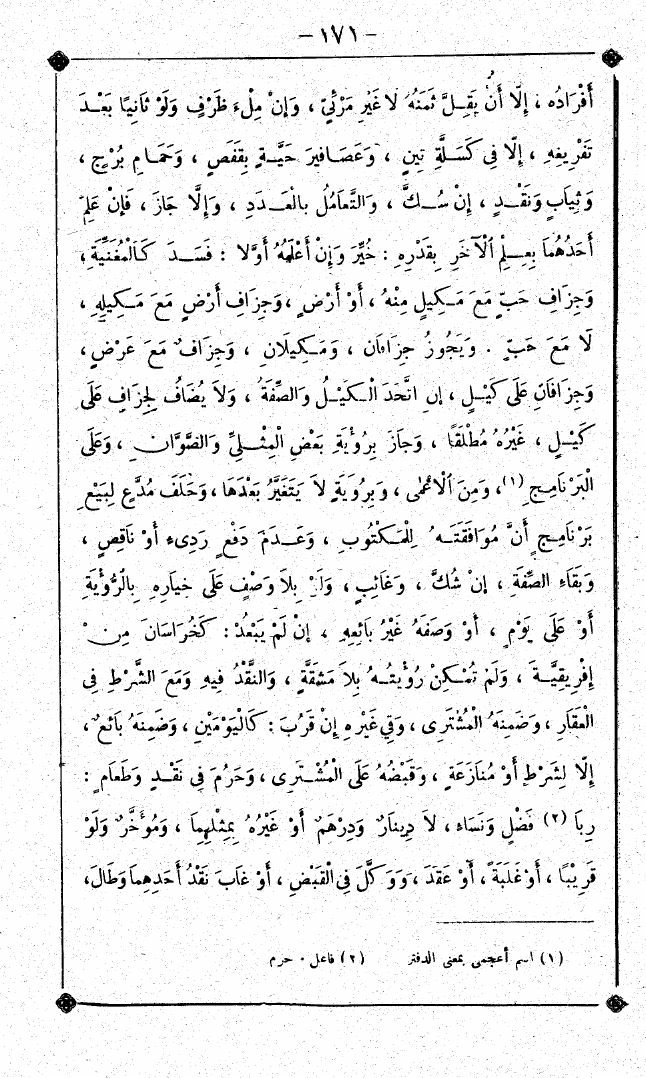 - ١٧١ -
أَفْرَادُه ، إِلَّا أَنْ يَقِلَّ ثَمَنُهُ لاَ غَيْرِ مَرْئِيٍّ ، وَإِنْ مِلْءَ ظَرْفٍ وَلَوْ ثَانِيًا بَعْدَ
تَفْرِيغِهِ ، إِلَّا فِي كَسَلَّةِ تِينٍ ، وَعَصَافِيرَ حَيَّةٍ بِقَفَصٍ ، وَحَمَامِ بُرْجٍ ،
وَثِيَابٍ وَنَقْدٍ ، إِنْ سُكَّ ، وَالتَّعَامُلُ بالْعَدَدِ ، وَإِلَّا جَازَ ، فَإِنْ عَلِمَ
أَحَدُهُمَا بِعِلْمِ الْآخَرِ بِقَدْرِهِ : خُيِّرَ وَإِنْ أَعْلَمَهُ أَوَّلًا : فَسَدَ كَالْمُغَنِّيَةِ ،
وَجِزَافِ حَبٍّ مَعَ مَكِيلٍ مِنْهُ ، أَوْ أَرْضٍ ، وَجِزَافِ أَرْضٍ مَعَ مَكِيلِهِ ،
لَا مَعَ حَبٍّ . وَيَجُوزُ جِزَافَانِ ، وَمَكِيلَانِ ، وَجِزَافٌ مَعَ عَرْضٍ ،
وَجِزَافَانِ عَلَى كَيْلٍ ، إِنِ اتَّحَدَ الْكَيْلُ وَالصِّفَةُ ، وَلاَ يُضَافُ لِجِزَافٍ عَلَى
كَيْلٍ ، غَيْرُهُ مُطْلَقًا ، وَجَازَ بِرُؤْيَةِ بَعْضِ الْمِثْلِيِّ وَالصَّوَّانِ ، وَعَلَى
الْبَرْنَامِجِ (١) ، وَمِنَ الْأَعْمَى ، وَبِرُؤْيَةٍ لاَ يَتَغَيَّرُ بَعْدَهَا ، وَحَلَفَ مُدَّعٍ لِبَيْعِ
بَرْنَامِجٍ أَنَّ مُوَافَقَتَهُ لِلْمَكْتُوبِ ، وَعَدَمَ دَفْعِ رَدِىءٍ أَوْ نَاقِصٍ ،
وَبَقَاءِ الصِّفَةِ ، إِنْ شُكَّ ، وَغَائِبٍ ، وَلَوْ بِلاَ وَصْفٍ عَلَى خِيَارِهِ بِالرُّؤْيَةِ
أَوْ عَلَى يَوْمٍ ، أَوْ وَصَفَهُ غَيْرُ بَائِعِهِ ، إِنْ لَمْ يَبْعُدْ : كَخُرَاسَانَ مِنْ
إِفْرِيقِيَّةَ ، وَلَمْ تُمْكِنْ رُؤْيَتُهُ بِلاَ مَشَقَّةٍ ، وَالنَّقْدُ فِيهِ وَمَعَ الشَّرْطِ فِي
الْعَقَارِ ، وَضَمِنَهُ الْمُشْتَرِى ، وَفِي غَيْرِهِ إِنْ قَرُبَ : كَالْيَوْمَيْنِ ، وَضَمِنَهُ بَائِعٌ ،
إِلَّا لِشَرْطٍ أَوْ مُنَازَعَةٍ ، وَقَبْضُهُ عَلَى الْمُشْتَرِى ، وَحَرُمَ فِي نَقْدٍ وَطَعَامٍ :
رِبَا (٢) فَضْلٍ وَنَسَاءٍ ، لاَ دِينَارٌ وَدِرْهَمٌ أَوْ غَيْرُهُ بِمِثْلِهِمَا ، وَمُؤَخَّرٌ وَلَوْ
قَرِيْبًا ، أَوْ غَلَبَةً ، أَوْ عَقَدَ ، وَوَكَّلَ فِي الْقَبْضِ ، أَوْ غَابَ نَقْدُ أَحَدِهِمَا وَطَالَ ،
(١) اسم أعجمى بمعنى الدفتر (٢) فاعل . حرم